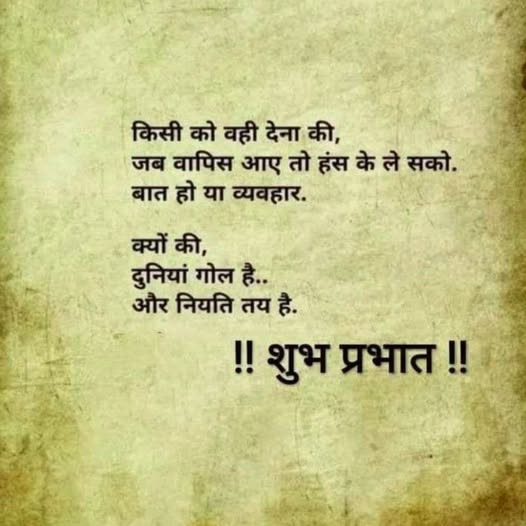 किसी को वही देना की,
जब वापिस आए तो हंस के ले सको.
बात हो या व्यवहार.
क्यों की,
दुनियां गोल है..
और नियति तय है.
!! शुभ प्रभात !!